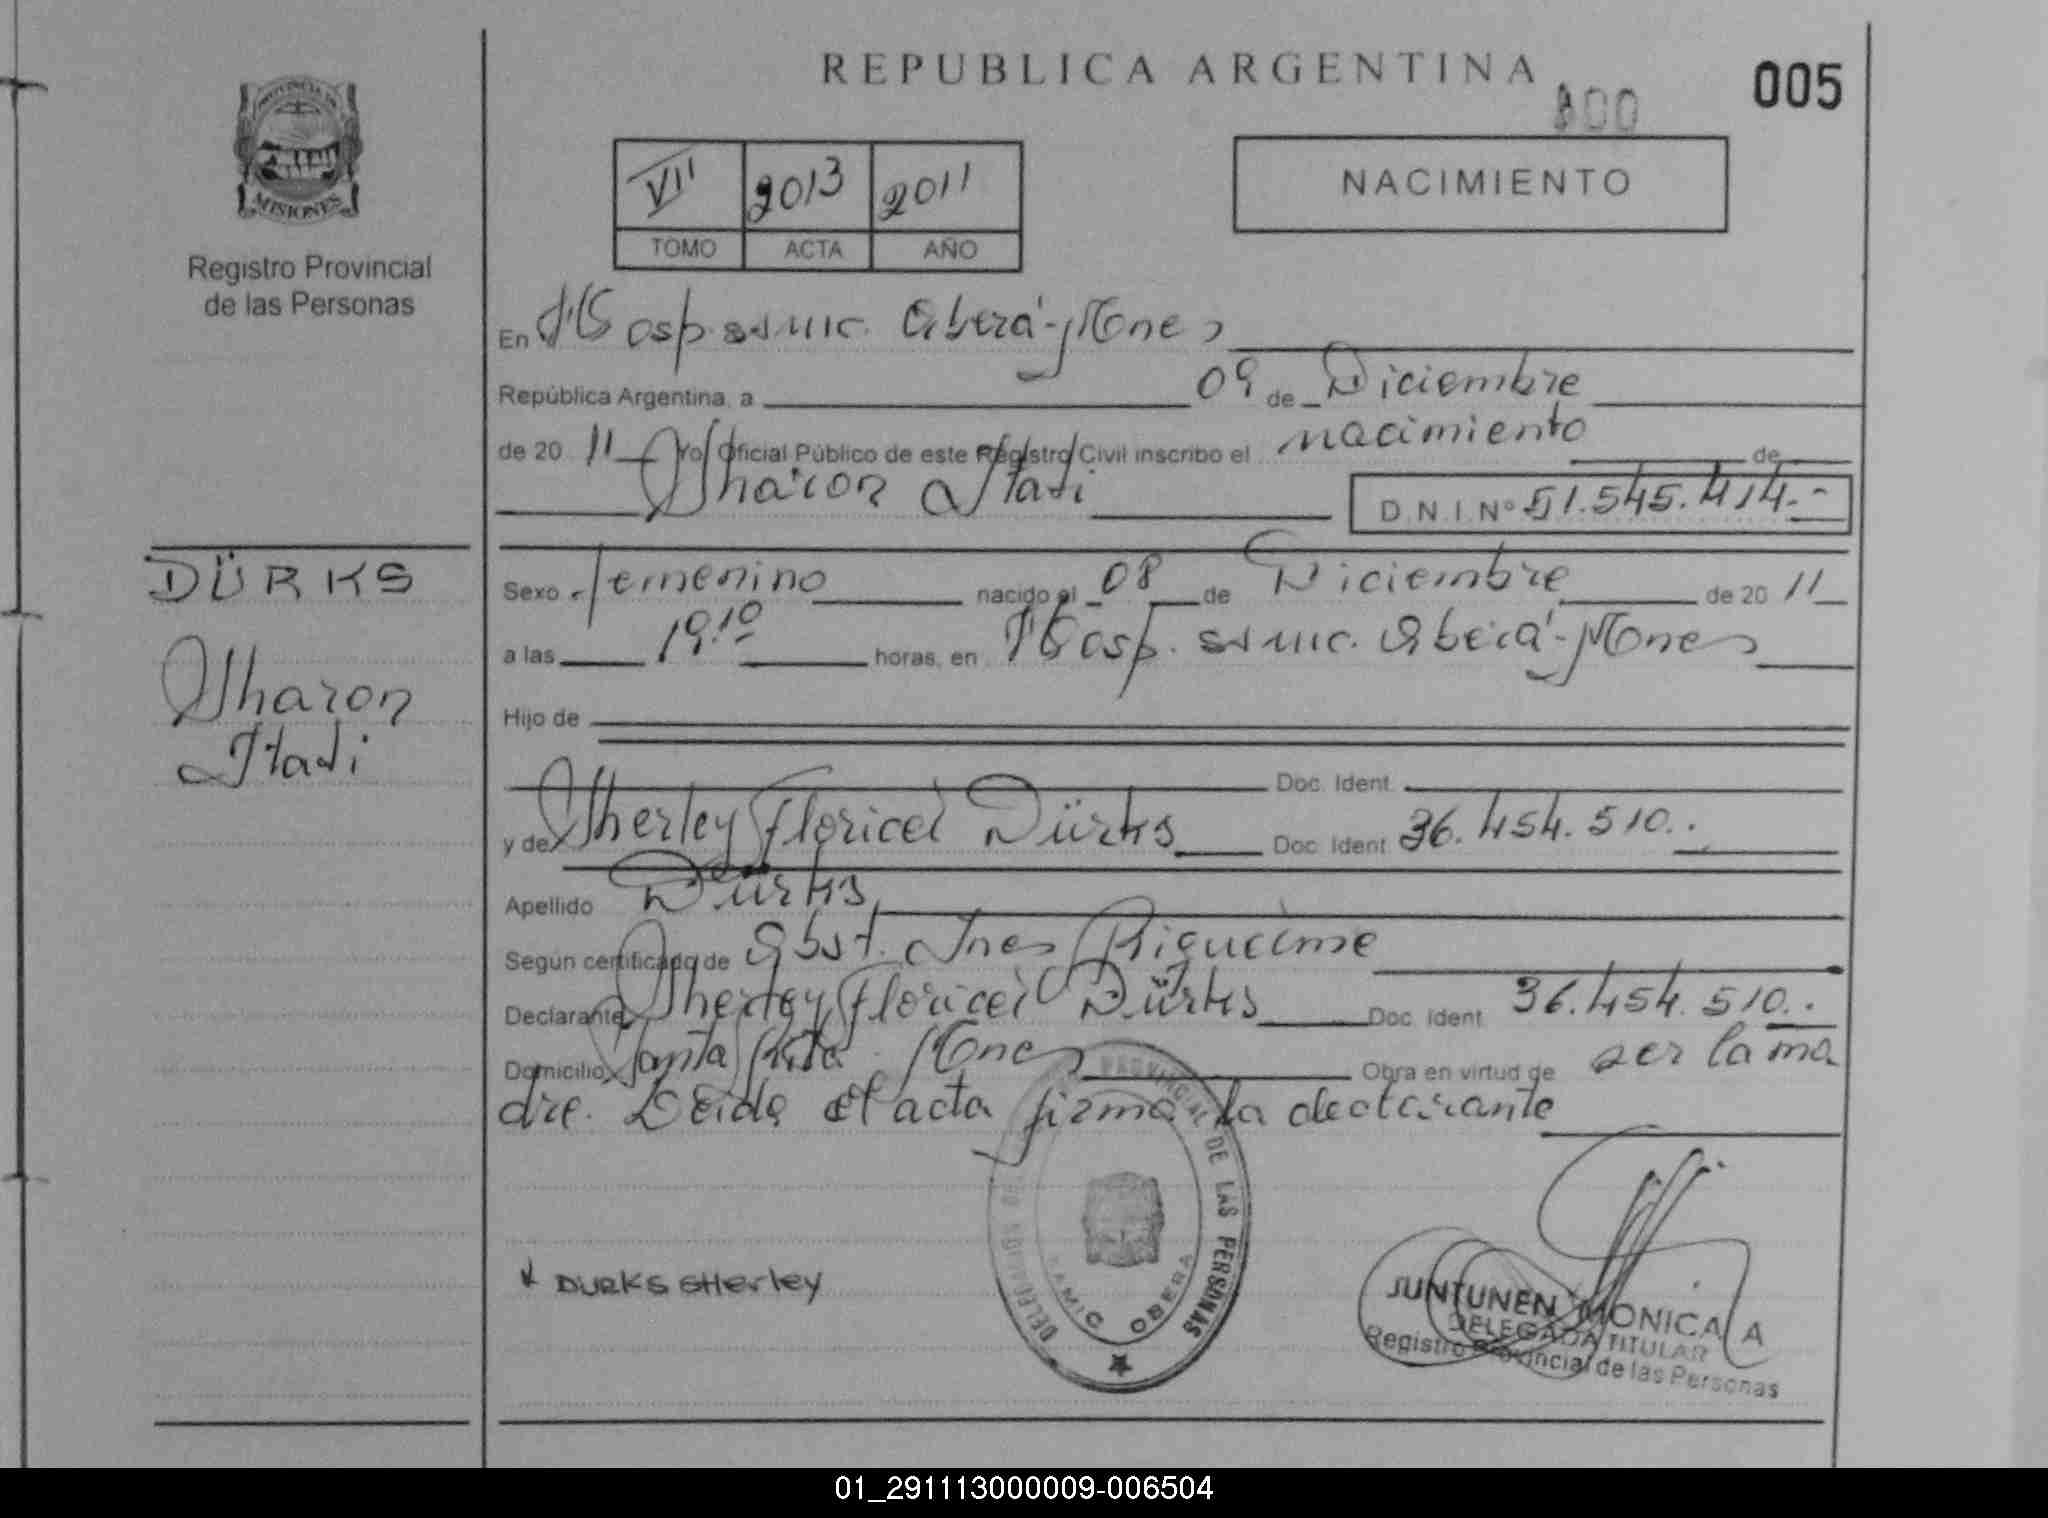 REPUBLICA ARGENTINA
005
PROVINCIA DE
MISIONES
Registro Provincial
de las Personas
VII 2013 2011
TOMO ACTA AÑO
NACIMIENTO
En Hosp. samic. Oberá-Mnes
República Argentina, a 09 de Diciembre
de 20 11 Yo Oficial Público de este Registro Civil inscribo el nacimiento de
Sharon Itati D.N.I. Nº 51.545.414.-
DÜRKS
Sharon
Itati
Sexo femenino nacido el 08 de Diciembre de 20 11
a las 19:10 horas, en Hosp. samic. Oberá-Mnes
Hijo de
Doc. Ident.
y de Sherley Floricel Dürks Doc. Ident. 36.454.510.-
Apellido Dürks
Según certificado de Obst. Ines Riquelme
Declarante Sherley Floricel Dürks Doc. Ident. 36.454.510.-
Domicilio Santa Rita Mnes Obra en virtud de ser la ma
dre. Leida el acta firma la declarante
DELEGACION DEL REGISTRO PROVINCIAL DE LAS PERSONAS
SAMIC OBERA
DURKS SHerley
JUNTUNEN MONICA A
DELEGADA TITULAR
Registro Provincial de las Personas
01_291113000009-006504